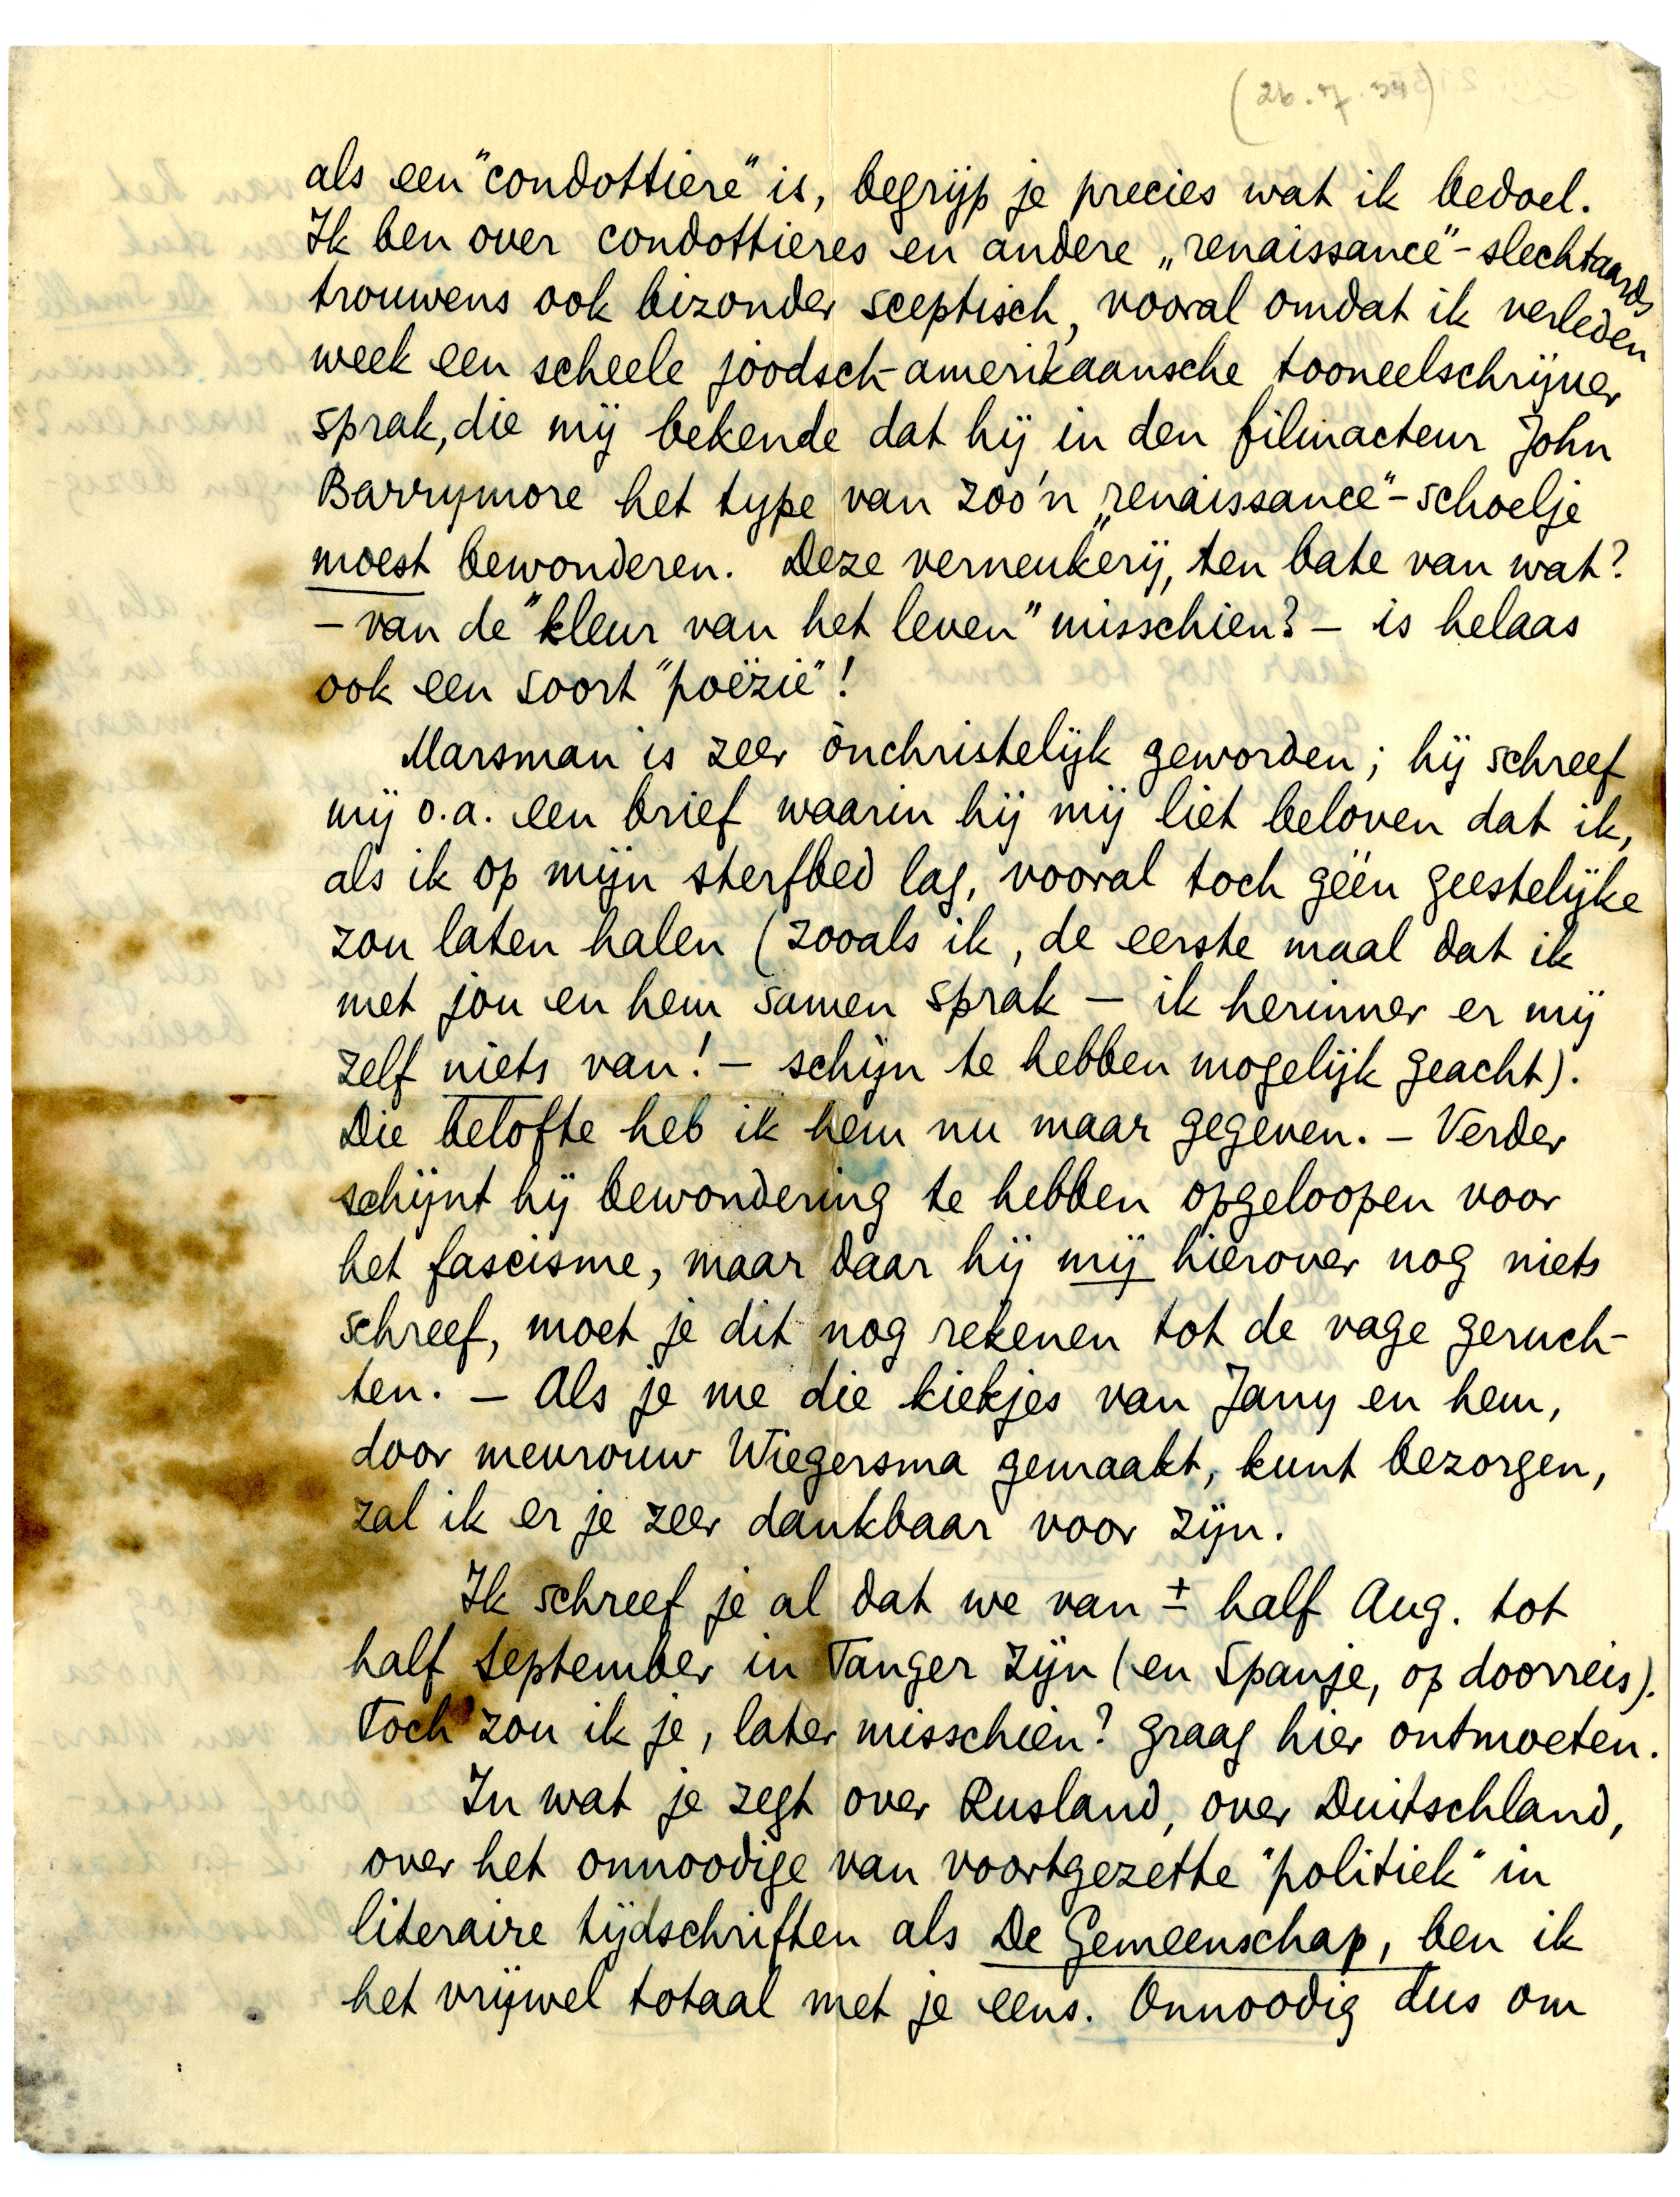 (26.7.34)
als een "condottiere" is, begrijp je precies wat ik bedoel.
Ik ben over condottieres en andere „renaissance"-slechtaards
trouwens ook bizonder sceptisch, vooral omdat ik verleden
week een scheele joodsch-amerikaansche tooneelschrijver
sprak, die mij bekende dat hij in den filmacteur John
Barrymore het type van zoo'n „renaissance"-schoelje
moest bewonderen. Deze verneukerij, ten bate van wat?
– van de "kleur van het leven" misschien? – is helaas
ook een soort "poëzie"!
Marsman is zeer ònchristelijk geworden; hij schreef
mij o.a. een brief waarin hij mij liet beloven dat ik,
als ik op mijn sterfbed lag, vooral toch géén geestelijke
zou laten halen (zooals ik, de eerste maal dat ik
met jou en hem samen sprak – ik herinner er mij
zelf niets van! – schijn te hebben mogelijk geacht).
Die belofte heb ik hem nu maar gegeven. – Verder
schijnt hij bewondering te hebben opgeloopen voor
het fascisme, maar daar hij mij hierover nog niets
schreef, moet je dit nog rekenen tot de vage geruch-
ten. – Als je me die kiekjes van Jany en hem,
door mevrouw Wiegersma gemaakt, kunt bezorgen,
zal ik er je zeer dankbaar voor zijn.
Ik schreef je al dat we van ± half Aug. tot
half September in Tanger zijn (en Spanje, op doorreis).
Toch zou ik je, later misschien? graag hier ontmoeten.
In wat je zegt over Rusland, over Duitschland,
over het onnoodige van voortgezette "politiek" in
literaire tijdschriften als De Gemeenschap, ben ik
het vrijwel totaal met je eens. Onnoodig dus om